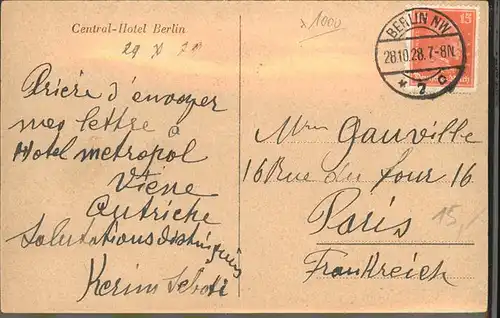 Central-Hotel Berlin
x1000
29 X
Prière d'envoyer
mes lettre à
Hotel metropol
Viene
Autriche
Salutations distinguées
Kerim
BERLIN NW
28.10.28.7-8N.
* 7 c
15
Mme Gauville
16 Rue du four 16
Paris
Frankreich
15,-